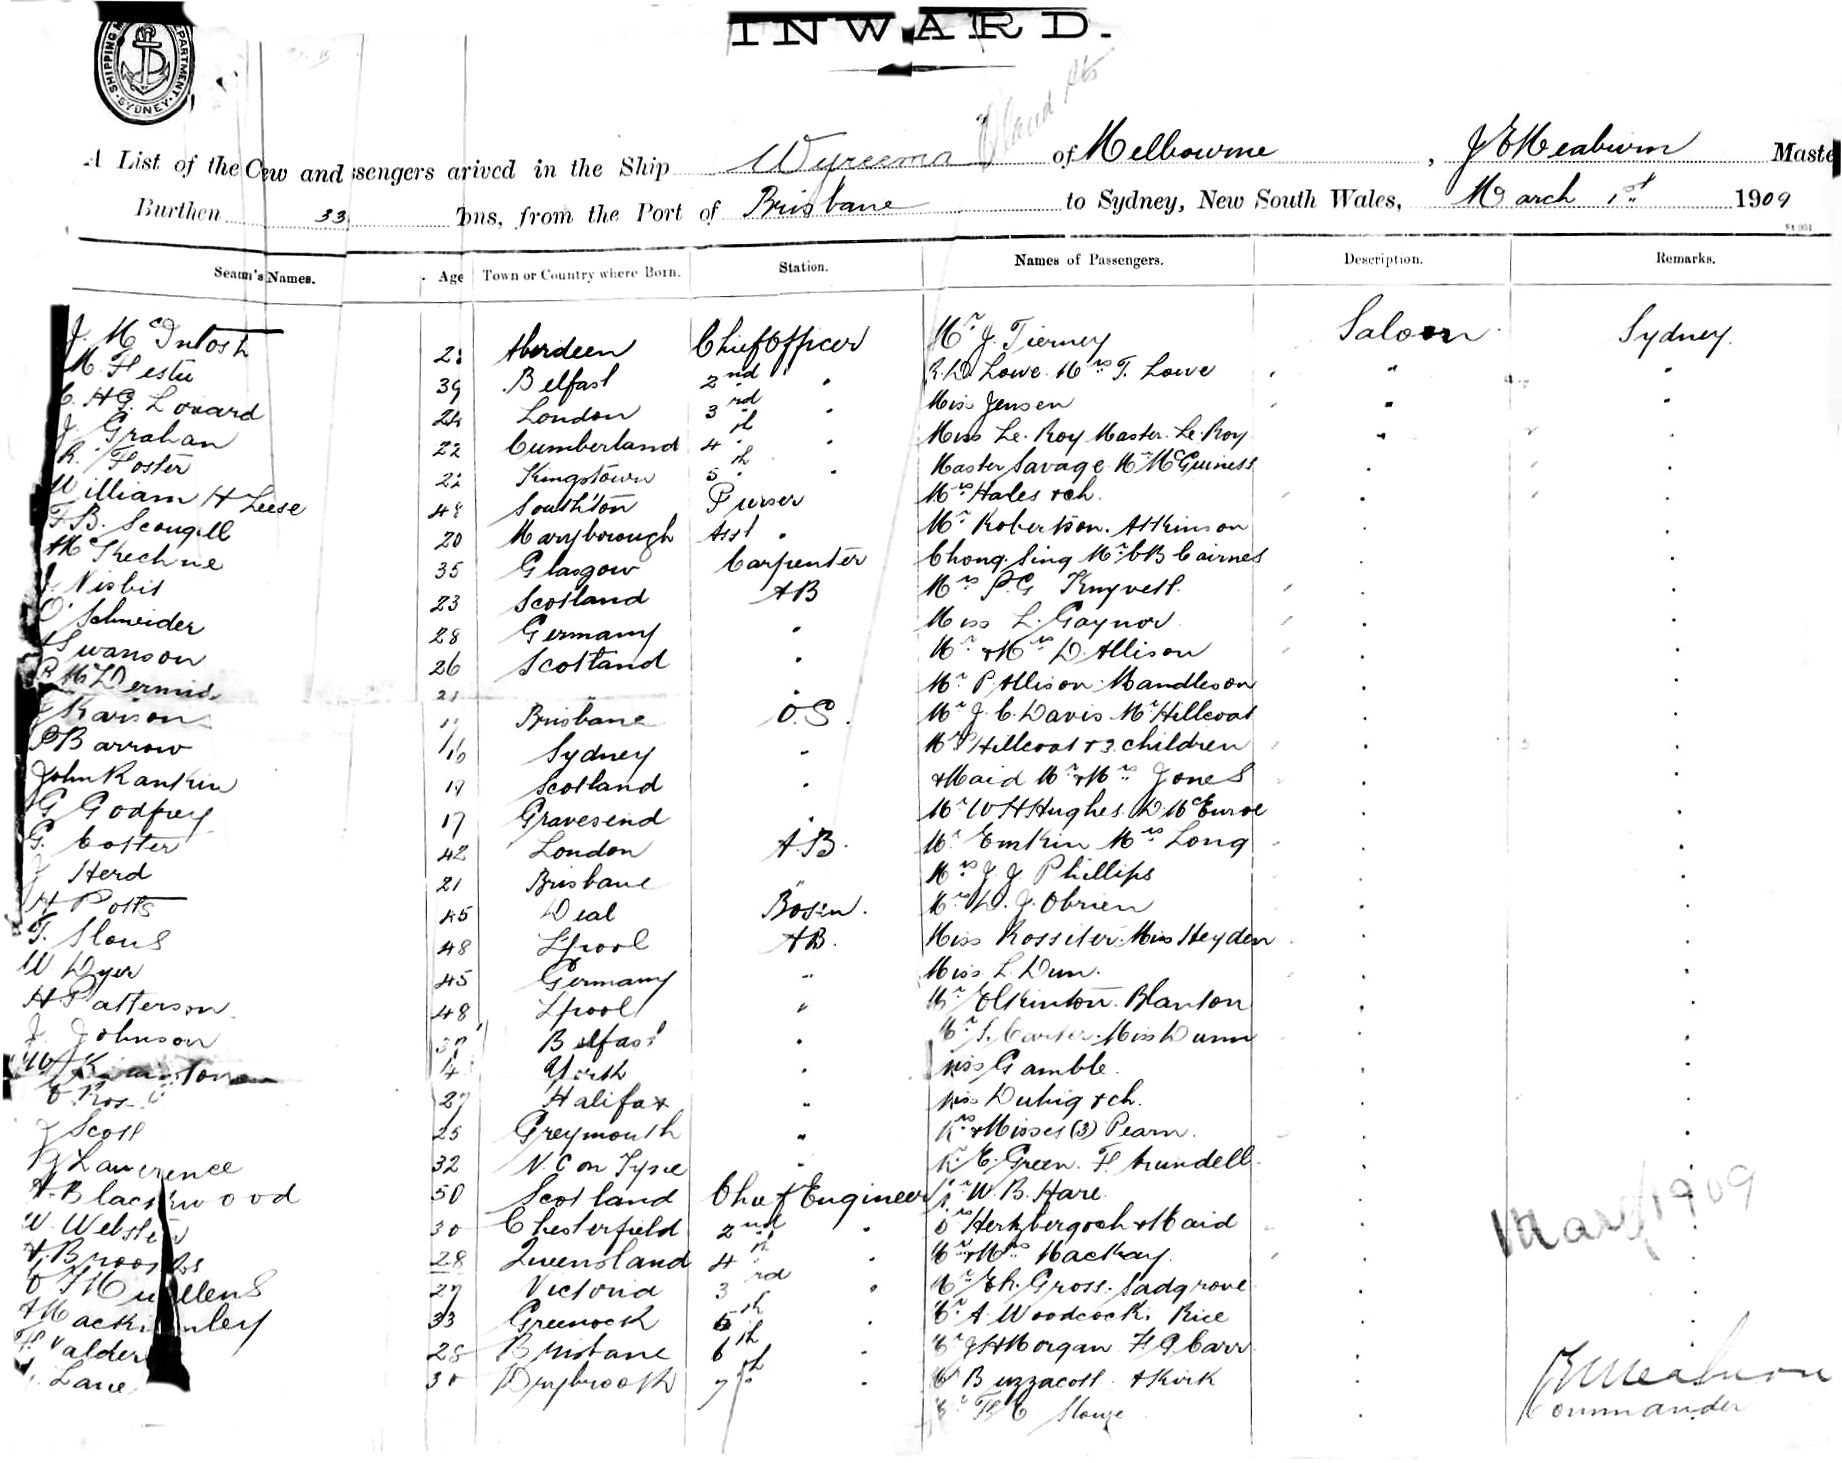 INWARD.
SHIPPING DEPARTMENT SYDNEY
A List of the Cew and ssengers arived in the Ship Wyreema of Melbourne, J E Meaburn Maste
Burthen 33 Tons, from the Port of Brisbane to Sydney, New South Wales, March 1st 1909
Seamn's Names. Age Town or Country where Born. Station. Names of Passengers. Description. Remarks.
J. McIntosh 2 Aberdeen Chief Officer Mr J. Tierney Saloon Sydney.
M. 39 Belfast 2nd " R. D. Lowe. Mrs T. Lowe "
C. HG. Lovard 24 London 3rd " Miss Jensen "
J Grahan 22 Cumberland 4th " Miss Le. Roy Master. Le. Roy "
R. Foster 22 Kingstown 5th " Master Savage. Mr McGuiness
William H Leese 48 South'ton Purser Mrs Hales & ch.
F.B. Scougall 20 Maryborough Asst " Mr Robertson. Atkinson
McKechnie 35 Glasgow Carpenter Chong. Sing Mr. C B Cairnes
J. Nisbit 23 Scotland AB Mrs P.G Knyvett.
O Schneider 28 Germany " Miss L. Gaynor
Swanson 26 Scotland " Mr & Mrs D. Allison
McDermid 21 " Mr P Allison. Mandleson
Karison Brisbane O.S. Mr J. C. Davis. Mr Hillcoat
P Barrow 16 Sydney " Mrs Hillcoat & 3 children
John Rankin 19 Scotland " & Maid Mr & Mrs Jones
G Godfrey 17 Gravesend " Mr W H Hughes. D. McEuroe
G. Coster 42 London A.B. Mr Emkin Mrs Long
J Herd 21 Brisbane " Mrs J. J Phillips
H Potts 45 Deal Bosun. Mrs D. J. Obrien
T. Slous 48 L'pool AB. Miss Rossiter. Miss Heyden
W Dyer 45 Germany " Miss L. Dun.
H Patterson 48 L'pool " Mr Elkinton. Blanton
J. Johnson Belfast " Mr S. Carter. Miss Dunn
W 4 York " Miss Gamble.
C Ros 27 Halifax " Miss Duhig & ch.
J Scott 25 Greymouth " Mrs & Misses (3) Pearn.
Lawrence 32 N.C on Tyne " E. Green. F. Arundell.
A. Blackwood 50 Scotland Chief Engineer W. B. Hare
W. Webster 30 Chesterfield 2nd " Herkbergoch & Maid
A. Brookes 28 Queensland 4th " Mr & Mrs Mackay.
C F Mullens 27 Victoria 3rd " Mr E h. Gross. Sadgrove
A Mackinley 33 Greenock 5th " Mr A Woodcock. Rice
Valder 28 Brisbane 6th " Mr J H Morgan F. G. Carr
Lane 30 Drybrook 7th " Mr Buzzacott. & Kirk
Mr F C
Mar/1909
J E Meaburn
Commander